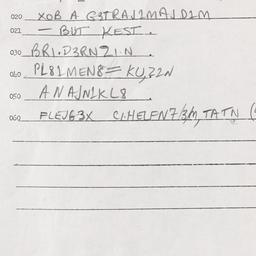 020 XOB A G3TRAJ1MAJD1M
021 — BUT KEST.
030 BR1.D3RN21.N.
040 PL81MEN8= KU,22N
050 ANAJN1KL8
060 FLEJ63X C1.HELEN7